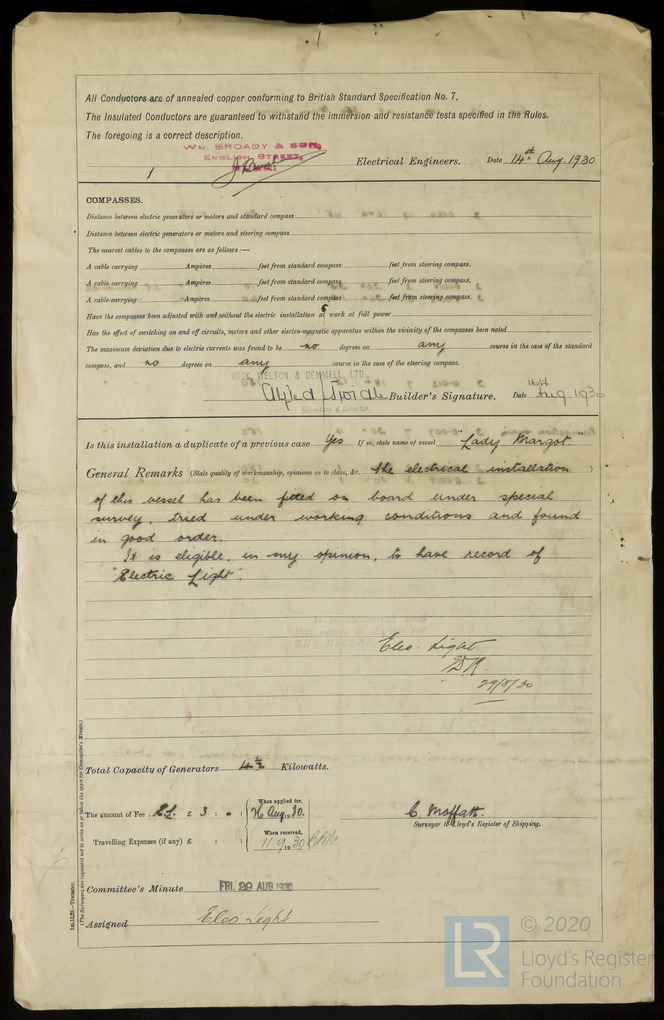 All Conductors are of annealed copper conforming to British Standard Specification No. 7.
The Insulated Conductors are guaranteed to withstand the immersion and resistance tests specified in the Rules.
The foregoing is a correct description.
WM. BROADY & SON,
ENGLISH STREET,
Electrical Engineers. Date 14th Aug. 1930.
COMPASSES.
Distance between electric generators or motors and standard compass
Distance between electric generators or motors and steering compass
The nearest cables to the compasses are as follows:—
A cable carrying Ampères feet from standard compass feet from steering compass.
A cable carrying Ampères feet from standard compass feet from steering compass.
A cable carrying Ampères feet from standard compass feet from steering compass.
Have the compasses been adjusted with and without the electric installation at work at full power
Has the effect of switching on and off circuits, motors and other electro-magnetic apparatus within the vicinity of the compasses been noted
The maximum deviation due to electric currents was found to be no degrees on any course in the case of the standard
compass, and no degrees on any course in the case of the steering compass.
COOK, WELTON & GEMMELL, LTD.,
Builder's Signature. Date 16th Aug. 1930
Secretary & Director.
Is this installation a duplicate of a previous case Yes If so, state name of vessel "Lady Margot."
General Remarks (State quality of workmanship, opinions as to class, &c. The electrical installation )
of this vessel has been fitted on board under special
survey, tried under working conditions and found
in good order.
It is eligible, in my opinion, to have record of
"Electric Light".
Elec. Light
29/8/30
Total Capacity of Generators 4½ Kilowatts.
The amount of Fee £ 3 : : When applied for, 26 Aug 1930.
Travelling Expenses (if any) £ : : When received, 11.9.1930
C. Moffatt.
Surveyor to Lloyd's Register of Shipping.
Committee's Minute FRI. 29 AUG 1930
Assigned Elec Light
1m,11,26—Transfer.
(The Surveyors are requested not to write on or below the space for Committee's Minute.)
LR © 2020
Lloyd's Register
Foundation